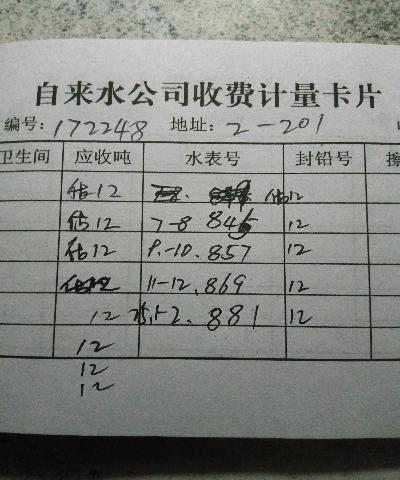 自来水公司收费计量卡片
编号: 172248 地址: 2-201
卫生间 应收吨 水表号 封铅号
估12 估12
估12 7-8 845 12
估12 9.-10.857 12
11-12.869 12
12 1-2.881 12
12
12
12